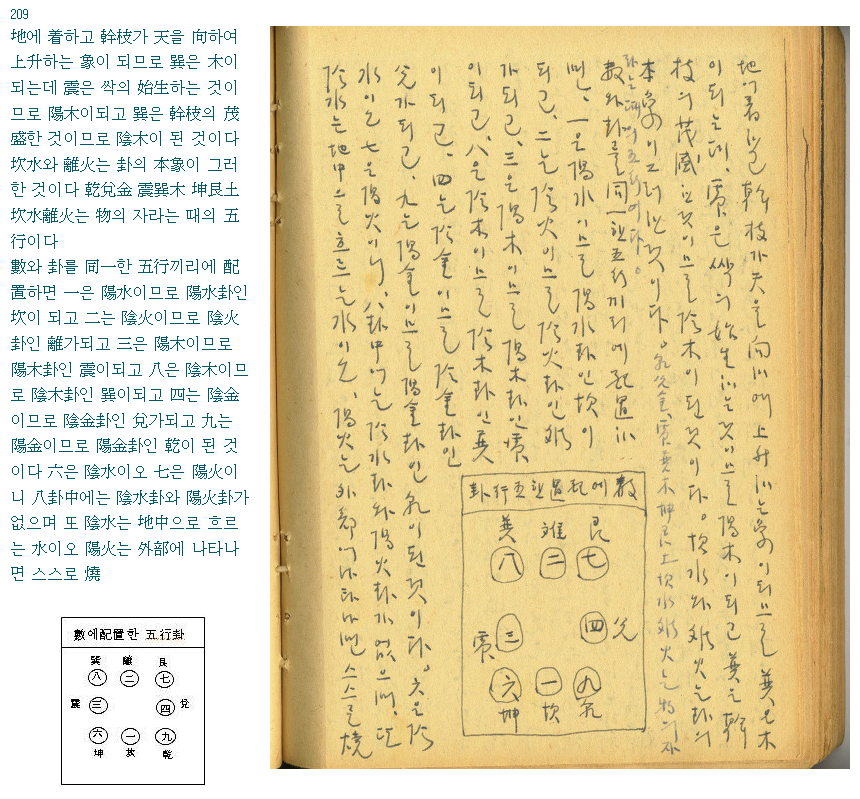 209
地에 着하고 幹枝가 天을 向하여
上升하는 象이 되므로 巽은 木이
되는데 震은 싹의 始生하는 것이
므로 陽木이되고 巽은 幹枝의 茂
盛한 것이므로 陰木이 된 것이다
坎水와 離火는 卦의 本象이 그러
한 것이다 乾兌金 震巽木 坤艮土
坎水離火는 物의 자라는 때의 五
行이다
數와 卦를 同一한 五行끼리에 配
置하면 一은 陽水이므로 陽水卦인
坎이 되고 二는 陰火이므로 陰火
卦인 離가되고 三은 陽木이므로
陽木卦인 震이되고 八은 陰木이므
로 陰木卦인 巽이되고 四는 陰金
이므로 陰金卦인 兌가되고 九는
陽金이므로 陽金卦인 乾이 된 것
이다 六은 陰水이오 七은 陽火이
니 八卦中에는 陰水卦와 陽火卦가
없으며 또 陰水는 地中으로 흐르
는 水이오 陽火는 外部에 나타나
면 스스로 燒
數에配置한 五行卦
巽 離 艮
八 二 七
震 三 四 兌
六 一 九
坤 坎 乾
地에着하고 幹枝가天을向하여 上升하는象이되므로 巽은木
이되는데, 震은싹의始生하는것이므로 陽木이되고 巽은幹
枝의茂盛한것이므로 陰木이된것이다。坎水와離火는卦의
本象이그러한것이다。乾兌金、震巽木 坤艮土 坎水離火는物의자
라는때의五行이다。
數와卦를同一한五行끼리에配置하
면、一은陽水이므로陽水卦인坎이
되고、二는陰火이므로陰火卦인離
가되고、三은陽木이므로陽木卦인震
이되고、八은陰木이므로陰木卦인巽
이되고、四는陰金이므로陰金卦인
兌가되고、九는陽金이므로陽金卦인 乾이된것이다。六은陰
水이오 七은陽火이니、八卦中에는陰水卦와陽火卦가없으며、또
陰水는地中으로흐르는水이오、陽火는外部에나타나면 스스로燒
數에配置한五行卦
巽 離 艮
八 二 七
震 三 四 兌
六 一 九
坤 坎 乾